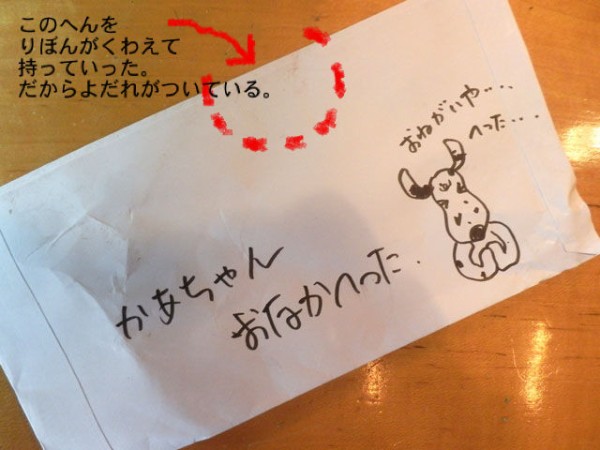 このへんを
りぼんがくわえて
持っていった。
だからよだれがついている。
おねがいや・・・
へった・・・
かあちゃん
おなかへった.